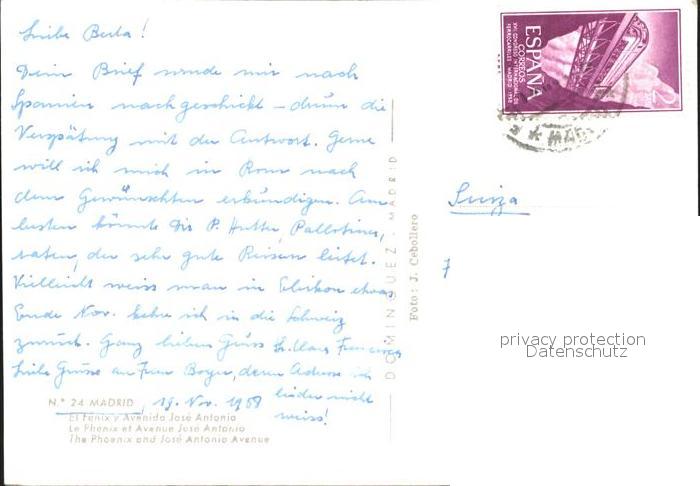 Liebe Berta!
Dein Brief wurde mir nach
Spanien nachgeschickt – drum die
Verspätung mit der Antwort. Gerne
will ich mich in Rom nach
dem Gewünschten erkundigen. Am
besten könnte Dir P. Hutter, Pallotiner,
raten, der sehr gute Reisen leitet.
Vielleicht weiss man in etwas
Ende Nov. kehre ich in die Schweiz
zurück. Ganz lieben Gruss
Liebe Grüsse an Frau deren Adresse ich
leider nicht
weiss!
19. Nov. 1958
N.º 24 MADRID
El Fénix y Avenida José Antonio
Le Phenix et Avenue José Antonio
The Phoenix and José Antonio Avenue
DOMINGUEZ - MADRID
Foto: J. Cebollero
ESPAÑA
CORREOS
XVII CONGRESO INTERNACIONAL DE
FERROCARRILES MADRID 1958
2
Suiza
privacy protection
Datenschutz